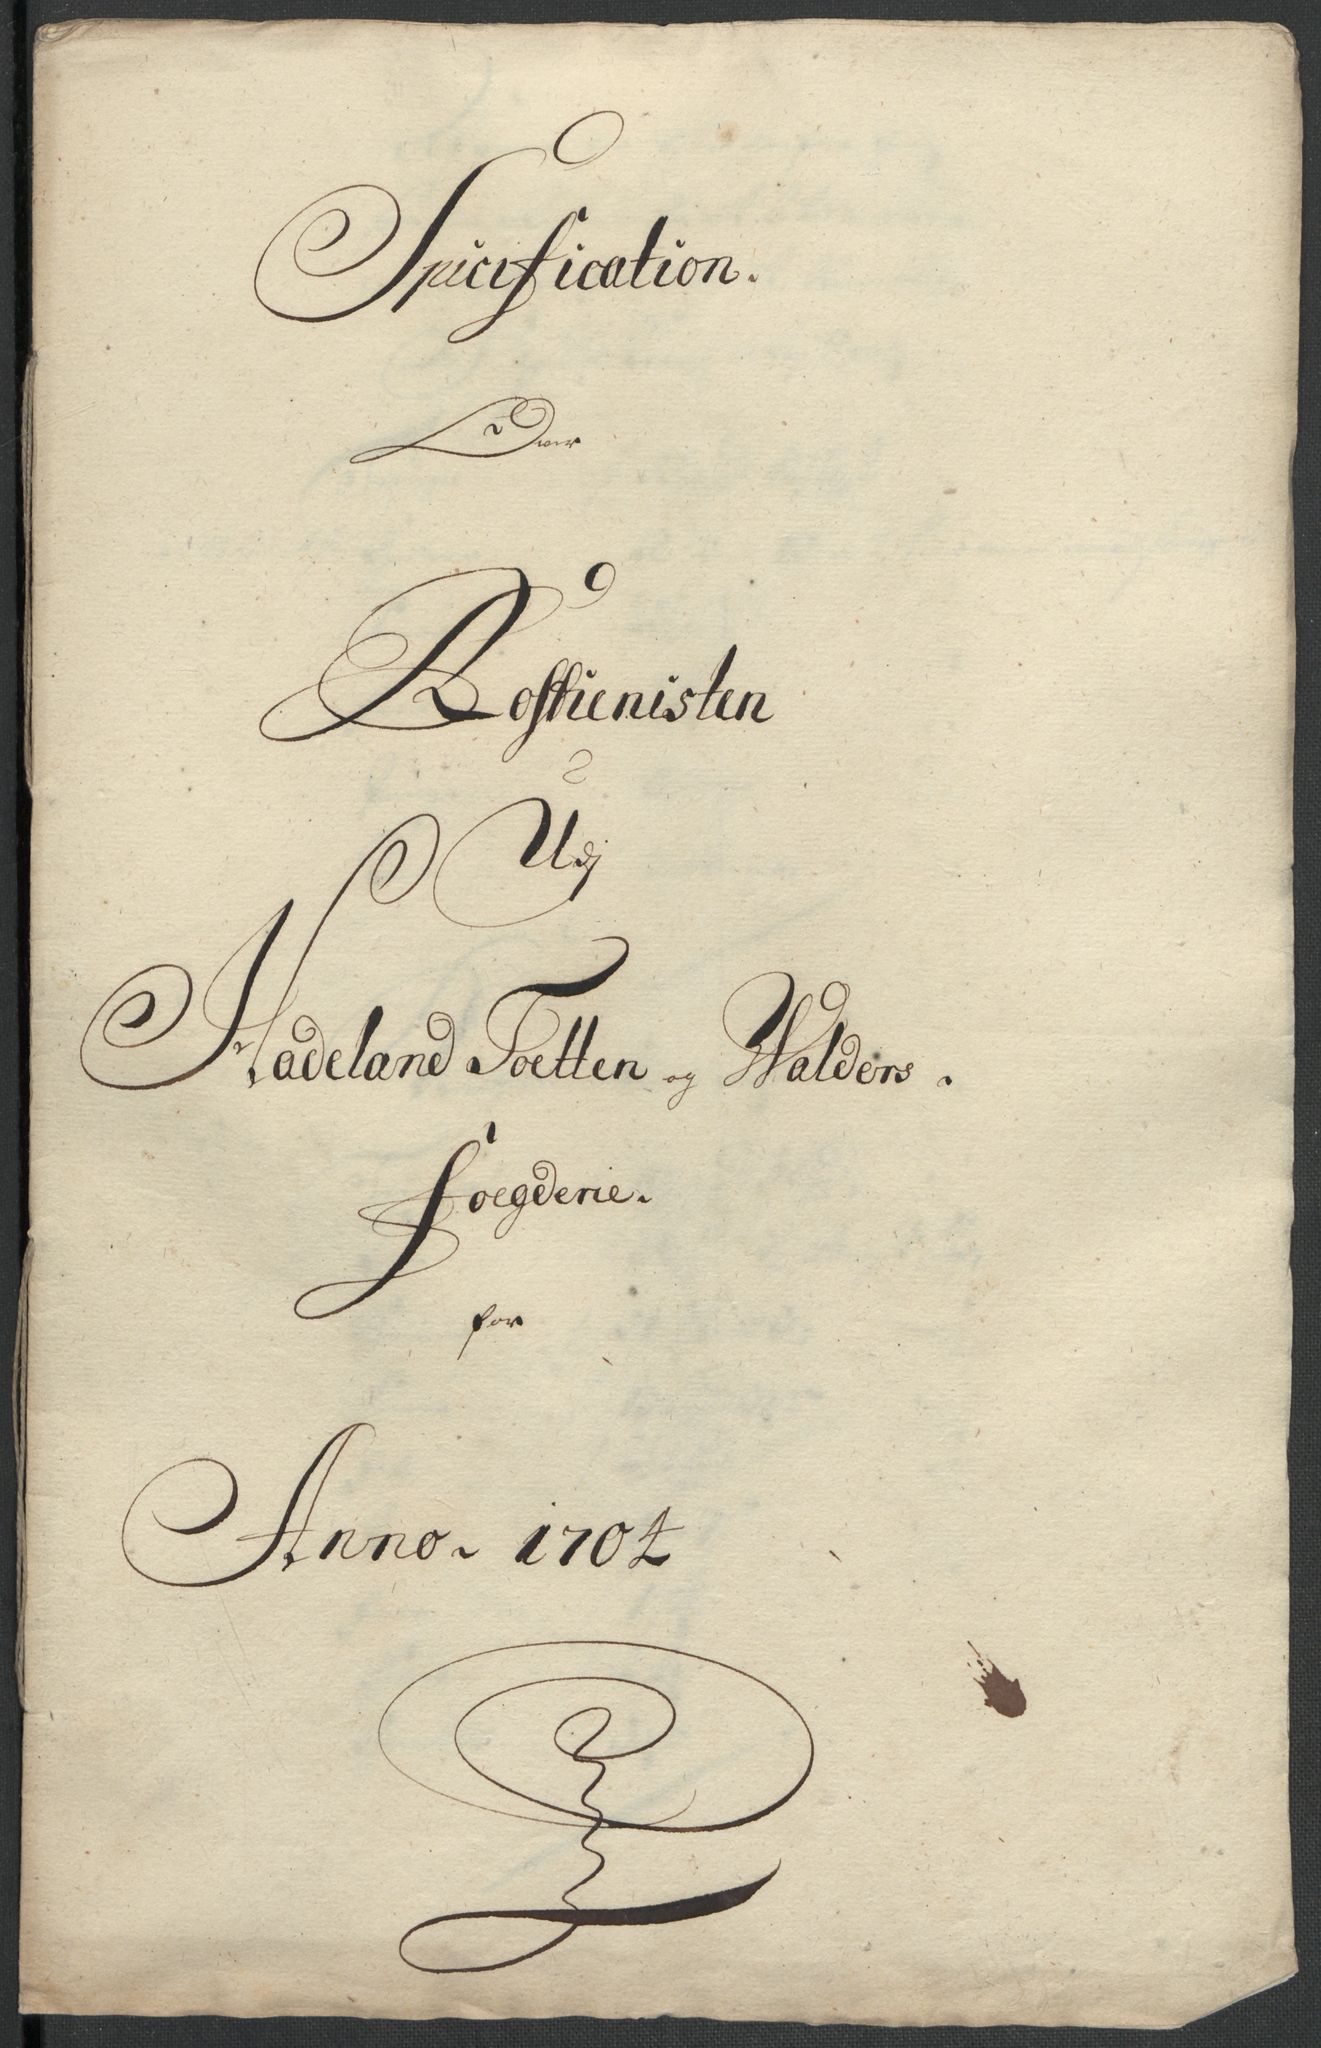 Specification.
Over
Rosttienisten
Udj
Hadeland Toetten og Walders.
Foegderie.
for
Anno. 1704